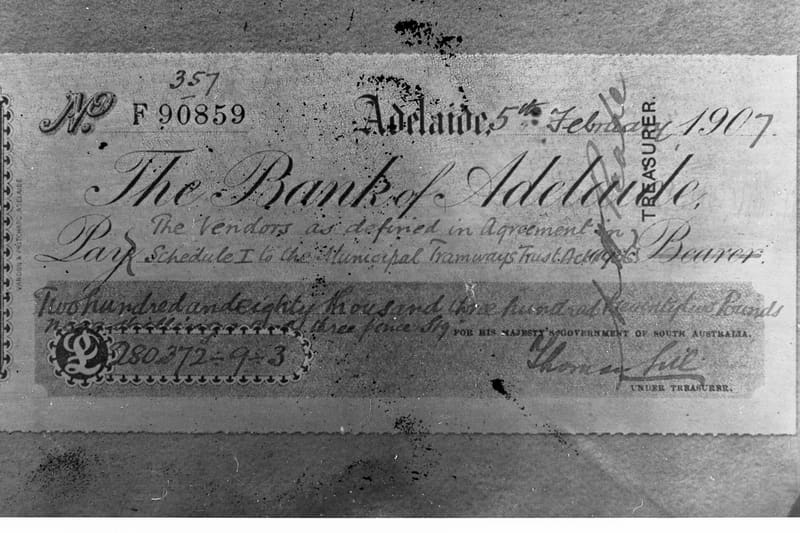 357
No. F 90859
Adelaide, 5th February 1907.
The Bank of Adelaide,
Pay The Vendors as defined in Agreement in
Schedule I to the Municipal Tramways Trust Act
Bearer.
Two hundred and eighty thousand three hundred Pounds
three pence Stg
FOR HIS MAJESTY'S GOVERNMENT OF SOUTH AUSTRALIA.
£ 280372-9-3
Thomas Gill
UNDER TREASURER.
TREASURER.
VARDON & PRITCHARD, ADELAIDE